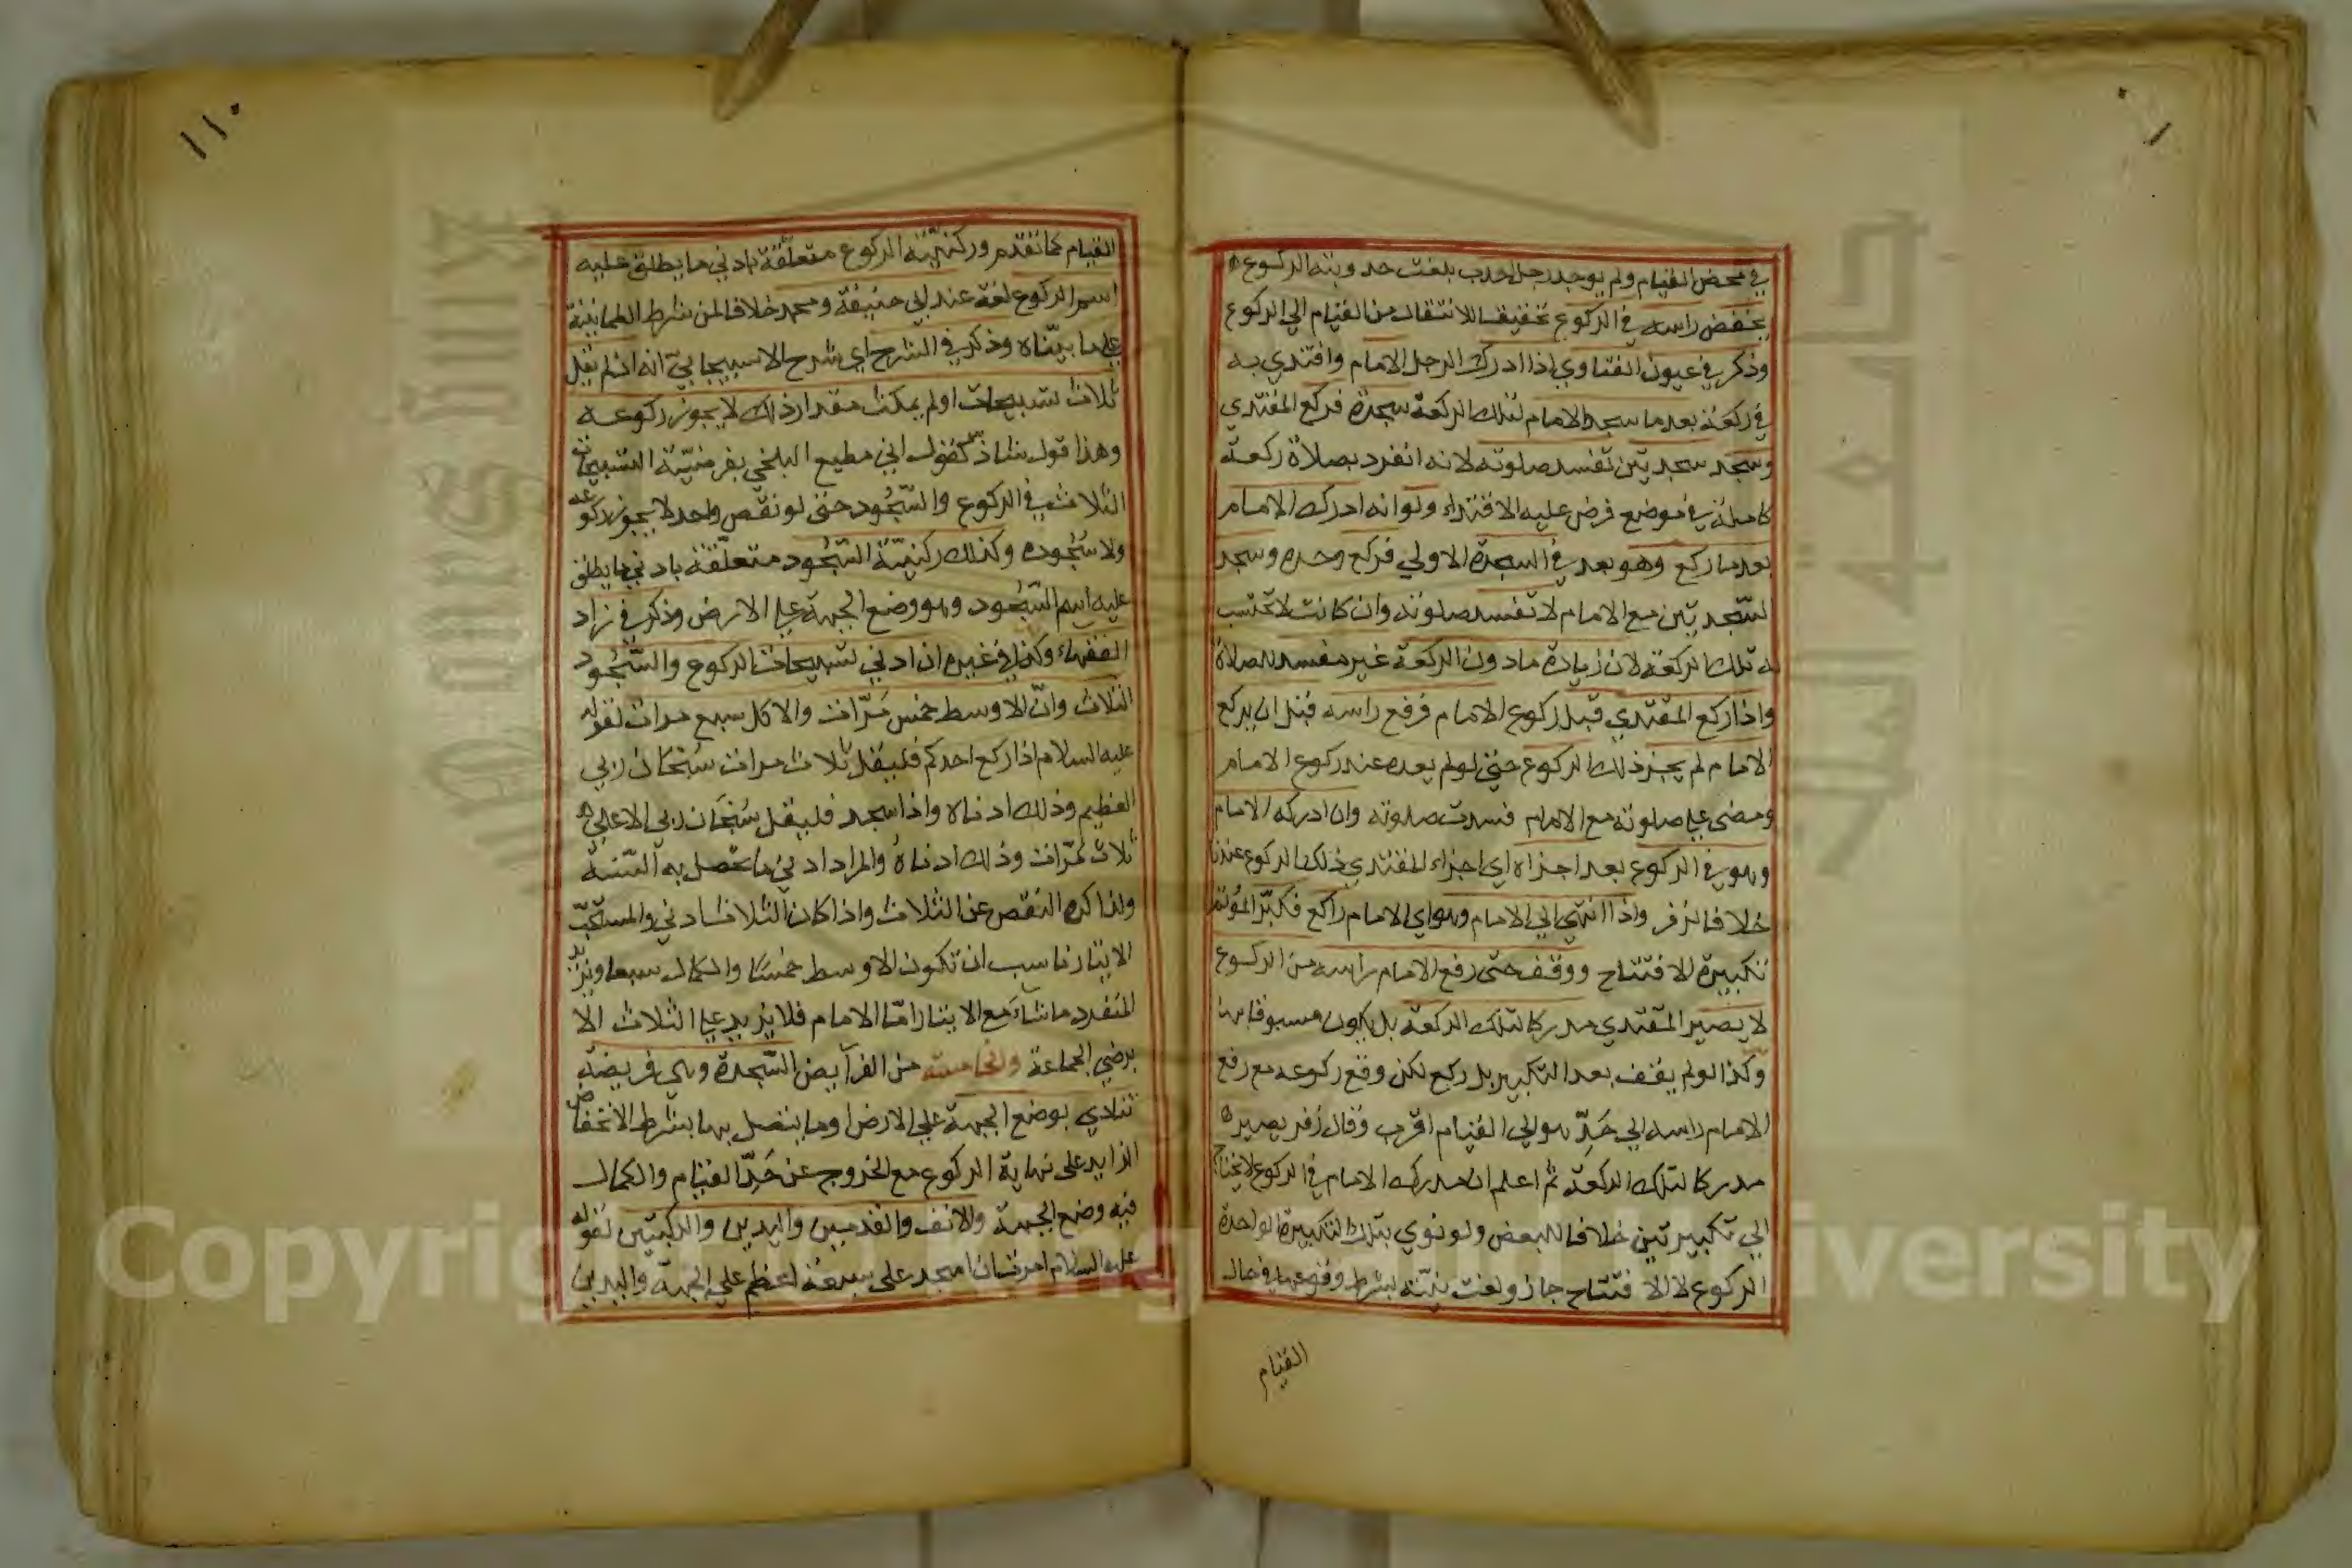 في محض القيام ولم يوجد رجل احدب بلغت حدوبته الركوع
يخفض راسه في الركوع تحقيقا للانتقال من القيام الي الركوع
وذكر في عيون الفتاوي اذا ادرك الرجل الامام واقتدي به
في ركعة بعد ما سجد الامام لتلك الركعة سجدة فركع المقتدي
وسجد سجدتين تفسد صلوته لانه انفرد بصلاة ركعة
كاملة في موضع فرض عليه الاقتداء ولو انه ادرك الامام
بعد ما ركع وهو بعد في السجدة الاولي فركع وحده وسجد
السّجدتين مع الامام لا تفسد صلوته وان كانت لا تحتسب
له تلك الركعة لان زيادة ما دون الركعة غير مفسد للصلاة
واذا ركع المقتدي قبل ركوع الامام فرفع راسه قبل ان يركع
الامام لم يجز ذلك الركوع حتي لو لم يعده عند ركوع الامام
ومضي علي صلوته مع الامام فسدت صلوته وان ادركه الامام
وهو في الركوع بعد اجزاه اي اجزاء المقتدي ذلك الركوع عندنا
خلافا لزفر واذا انتهي الي الامام وهو اي الامام راكع فكبّر المؤتم
تكبيرة الافتتاح ووقف حتى رفع الامام راسه من الركوع
لا يصير المقتدي مدركا لتلك الركعة بل يكون مسبوقا بها
وكذا لو لم يقف بعد التكبير بل ركع لكن وقع ركوعه مع رفع
الامام راسه الي حَدّ هو الي القيام اقرب وقال زفر يصير
مدركا لتلك الركعة ثم اعلم ان مدرك الامام في الركوع لا يحتاج
الي تكبيرتين خلافا للبعض ولو نوي بتلك التكبيرة الواحدة
الركوع لا الافتتاح جاز ولغت نيّته بشرط وقوعها في حال
القيام
١١٠
القيام كما تقدم وركنيّة الركوع متعلّقة بادني ما يطلق عليه
اسم الركوع لغة عند ابي حنيفة ومحمد خلافا لمن شرط الطمانينة
علي ما بيّناه وذكر في الشرح اي شرح الاسبيجابيّ انه ان لم يقل
ثلاث تسبيحات او لم يمكث مقدار ذلك لا يجوز ركوعه
وهذا قول شاذّ كقول ابي مطيع البلخي بفرضيّة التسبيحات
الثلاث في الركوع والسّجُود حتي لو نقص واحد لا يجوز ركوعه
ولا سُجُوده وكذلك ركنيّة السّجُود متعلّقة بادني ما يطلق
عليه اسم السّجُود وهو وضع الجبهة علي الارض وذكر في زاد
الفقهاء وكذا في غيره ان ادني تسبيحات الركوع والسّجُود
الثلاث وانّ الاوسط خمس مَرّات والاكمل سبع مرات لقوله
عليه السلام اذا ركع احدكم فليقل ثلاث مرات سُبْحَان ربي
العظيم وذلك ادناه واذا سجد فليقل سُبْحَان ربي الاعلي
ثلاث مَرّات وذلك ادناهُ والمراد ادني ما تحصل به السّنة
ولذا كره النقص عن الثلاث واذا كان الثلاث ادني والمستحبّ
الايتار ناسب ان تكون الاوسط خمسًا والكمال سبعا ويزيد
المنفرد ما شآء مع الايتار امّا الامام فلا يزيد علي الثلاث الا
برضي الجماعة والخامسة من الفرآيض السّجدة وهي فريضة
تتادي بوضع الجبهة علي الارض او ما يتصل بها بشرط الانخفاض
الزايد على نهاية الركوع مع الخروج عن حَدّ القيام والكمال
فيه وضع الجبهة والانف والقدمين واليدين والركبتين لقوله
عليه السلام امرت ان اسجد على سبعة اعظم علي الجبهة واليدين